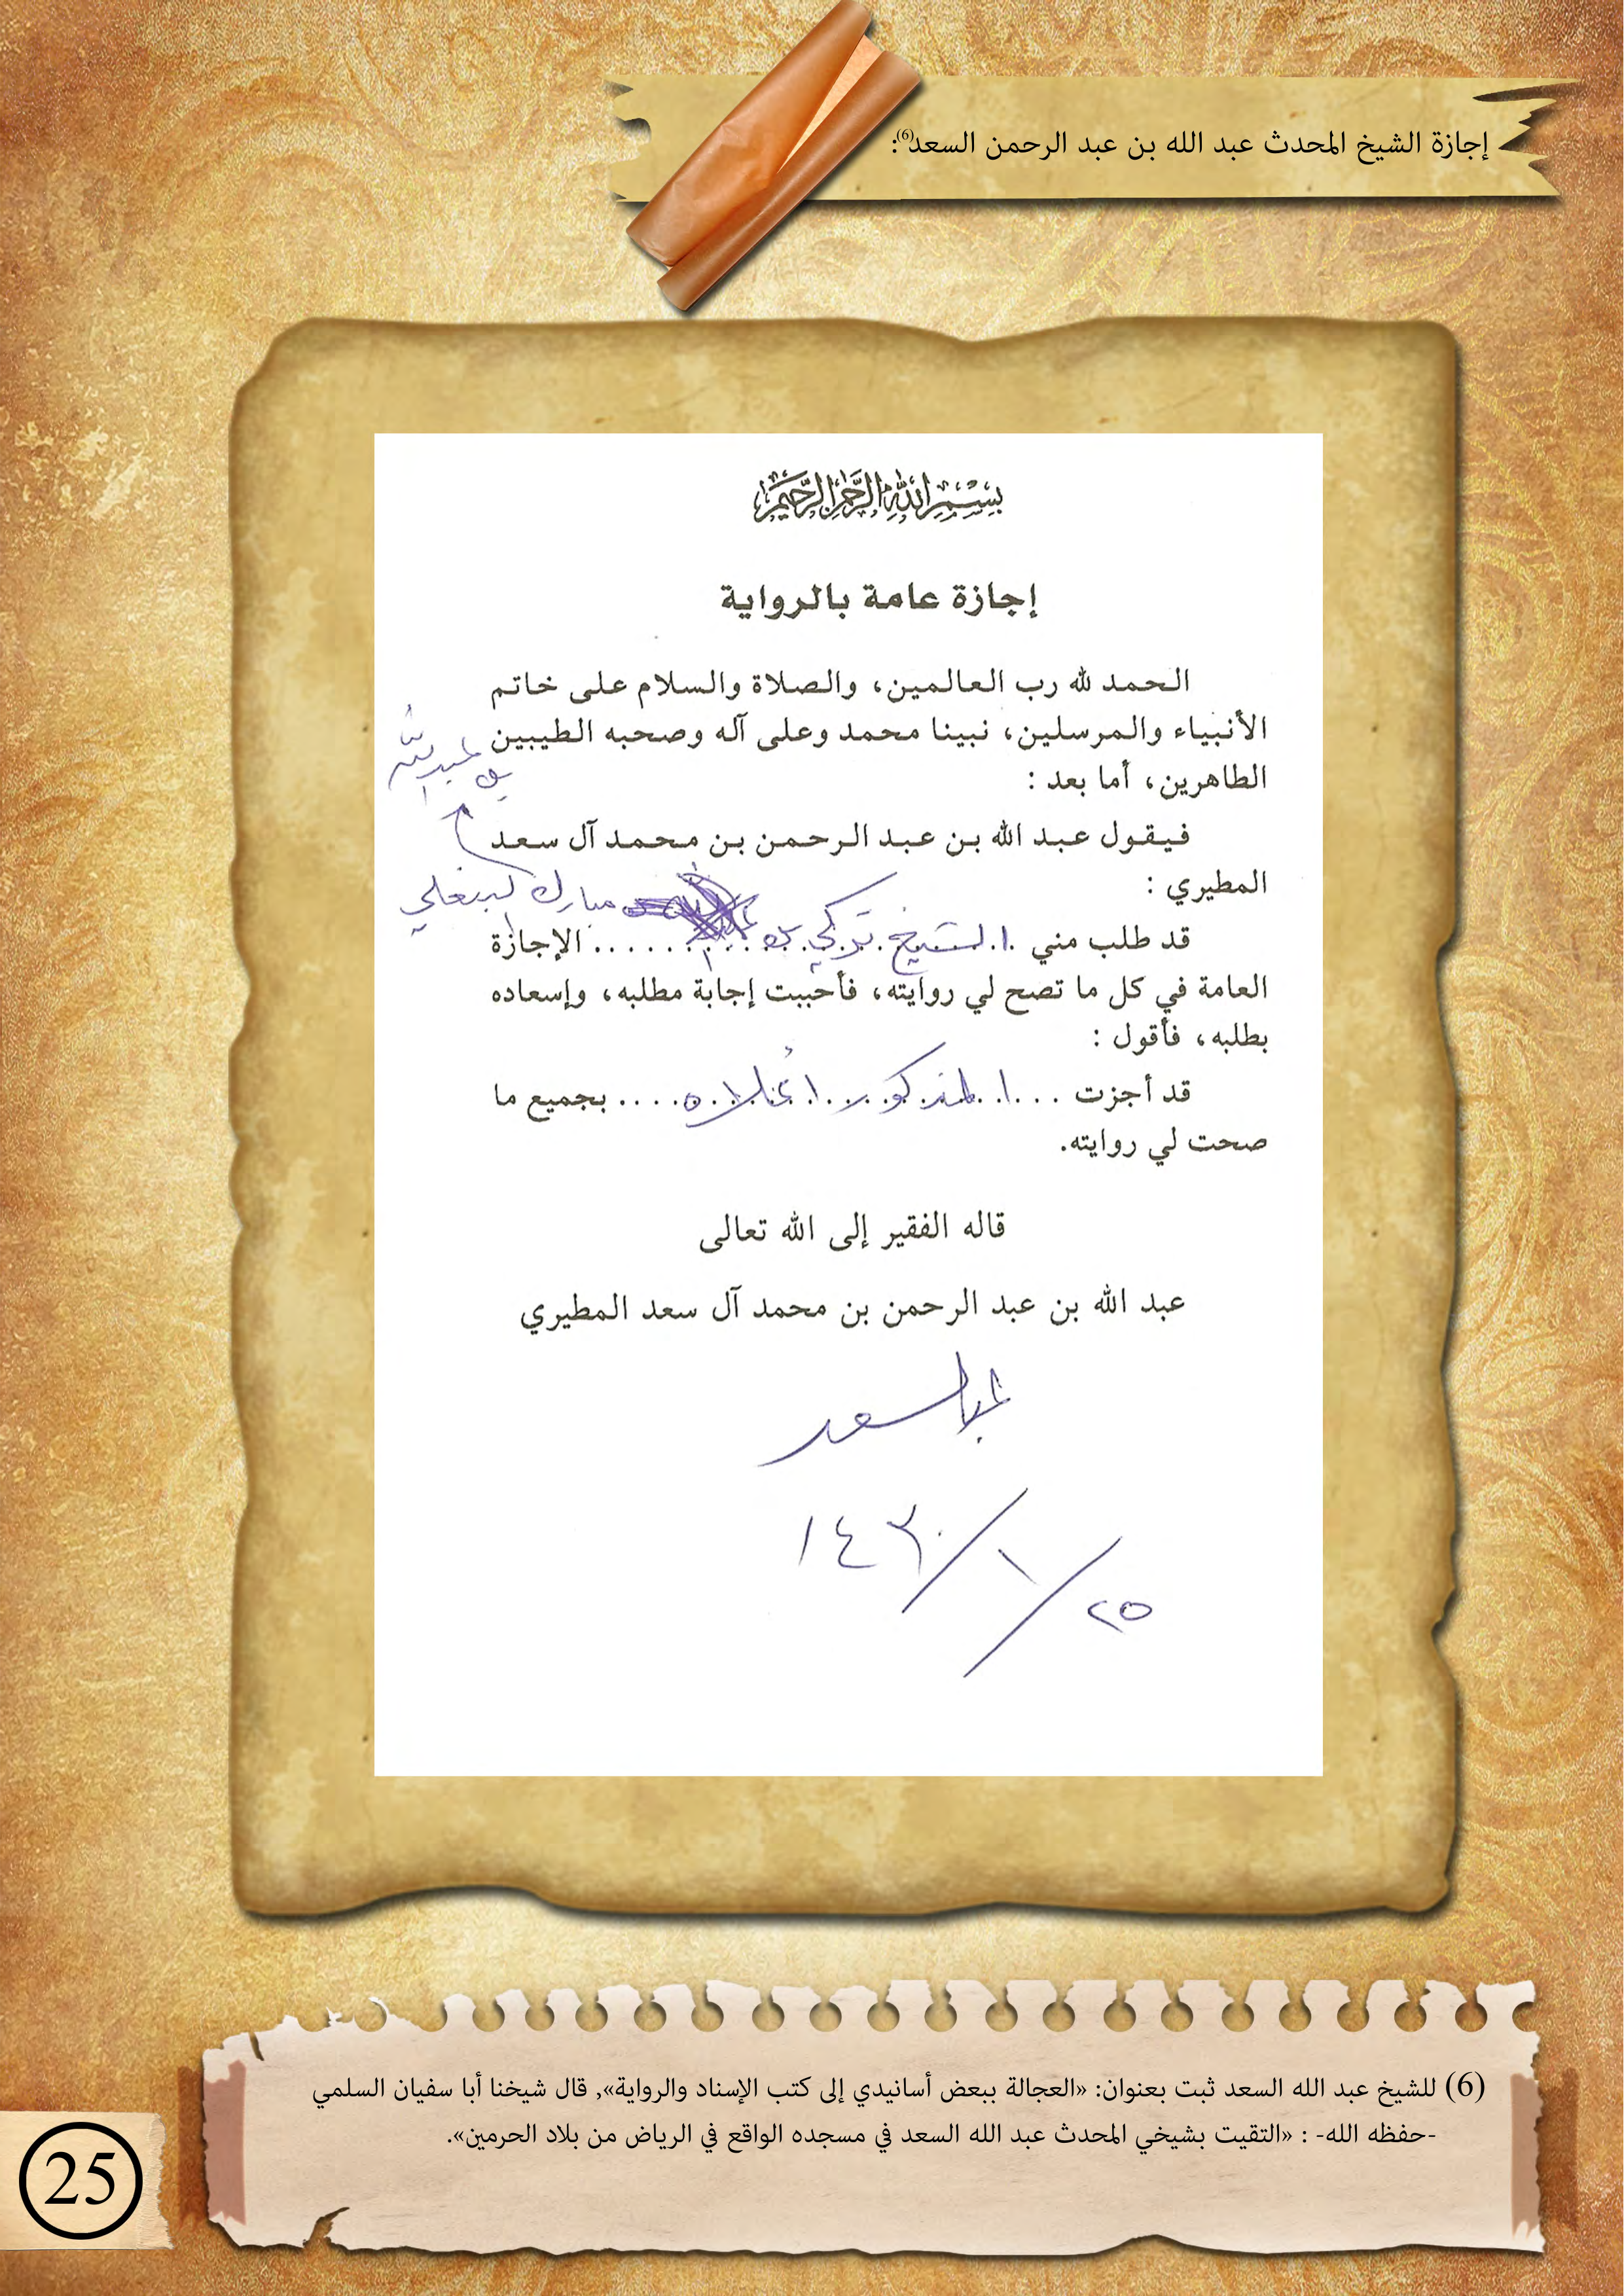 إجازة الشيخ المحدث عبد الله بن عبد الرحمن السعد(6):
بسم الله الرحمن الرحيم
إجازة عامة بالرواية
الحمد لله رب العالمين، والصلاة والسلام على خاتم
الأنبياء والمرسلين، نبينا محمد وعلى آله وصحبه الطيبين
الطاهرين، أما بعد :
بن عبد الله
فيقول عبد الله بن عبد الرحمن بن محمد آل سعد
المطيري :
مبارك البنعلي
قد طلب مني .الشيخ تركي بن ...... الإجازة
العامة في كل ما تصح لي روايته، فأحببت إجابة مطلبه، وإسعاده
بطلبه، فأقول :
قد أجزت ... المذكور أعلاه .... بجميع ما
صحت لي روايته.
قاله الفقير إلى الله تعالى
عبد الله بن عبد الرحمن بن محمد آل سعد المطيري
عبدالله السعد
٢٥/١/١٤٣٠
(6) للشيخ عبد الله السعد ثبت بعنوان: «العجالة ببعض أسانيدي إلى كتب الإسناد والرواية», قال شيخنا أبا سفيان السلمي
-حفظه الله- : «التقيت بشيخي المحدث عبد الله السعد في مسجده الواقع في الرياض من بلاد الحرمين».
25